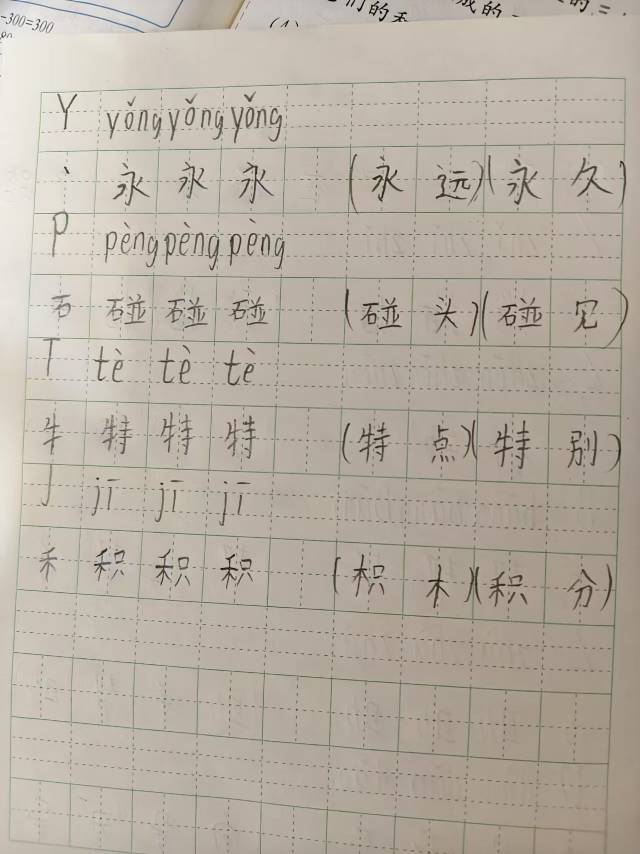 -300=300
们的
成的
的=
(1)
Y yǒng yǒng yǒng
丶 永 永 永 (永 远)(永 久)
P pèng pèng pèng
石 碰 碰 碰 (碰 头)(碰 见)
T tè tè tè
牜 特 特 特 (特 点)(特 别)
J jī jī jī
禾 积 积 积 (积 木)(积 分)